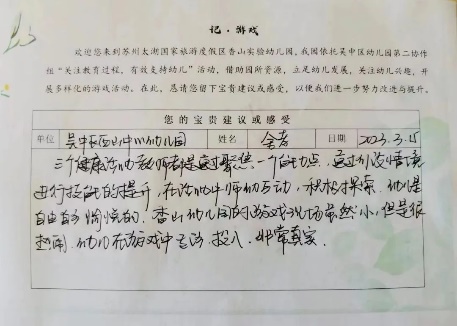 记·游戏
欢迎您来到苏州太湖国家旅游度假区香山实验幼儿园，我园依托吴中区幼儿园第二协作
组“关注教育过程，有效支持幼儿”活动，借助园所资源，立足幼儿发展，关注幼儿兴趣，开
展多样化的游戏活动。在此，恳请您留下宝贵建议或感受，以便我们进一步努力改进与提升。
您的宝贵建议或感受
单位 吴中区 幼儿园 姓名 日期 2023.3.15
三个健康活动教师都是通过聚焦一个点，通过 情境
进行技能的提升，在活动中师幼互动，积极探索，幼儿是
自由自主愉悦的。香山幼儿园的游戏现场虽然小，但是很
幼儿在游戏中灵活、投入，非常真实。